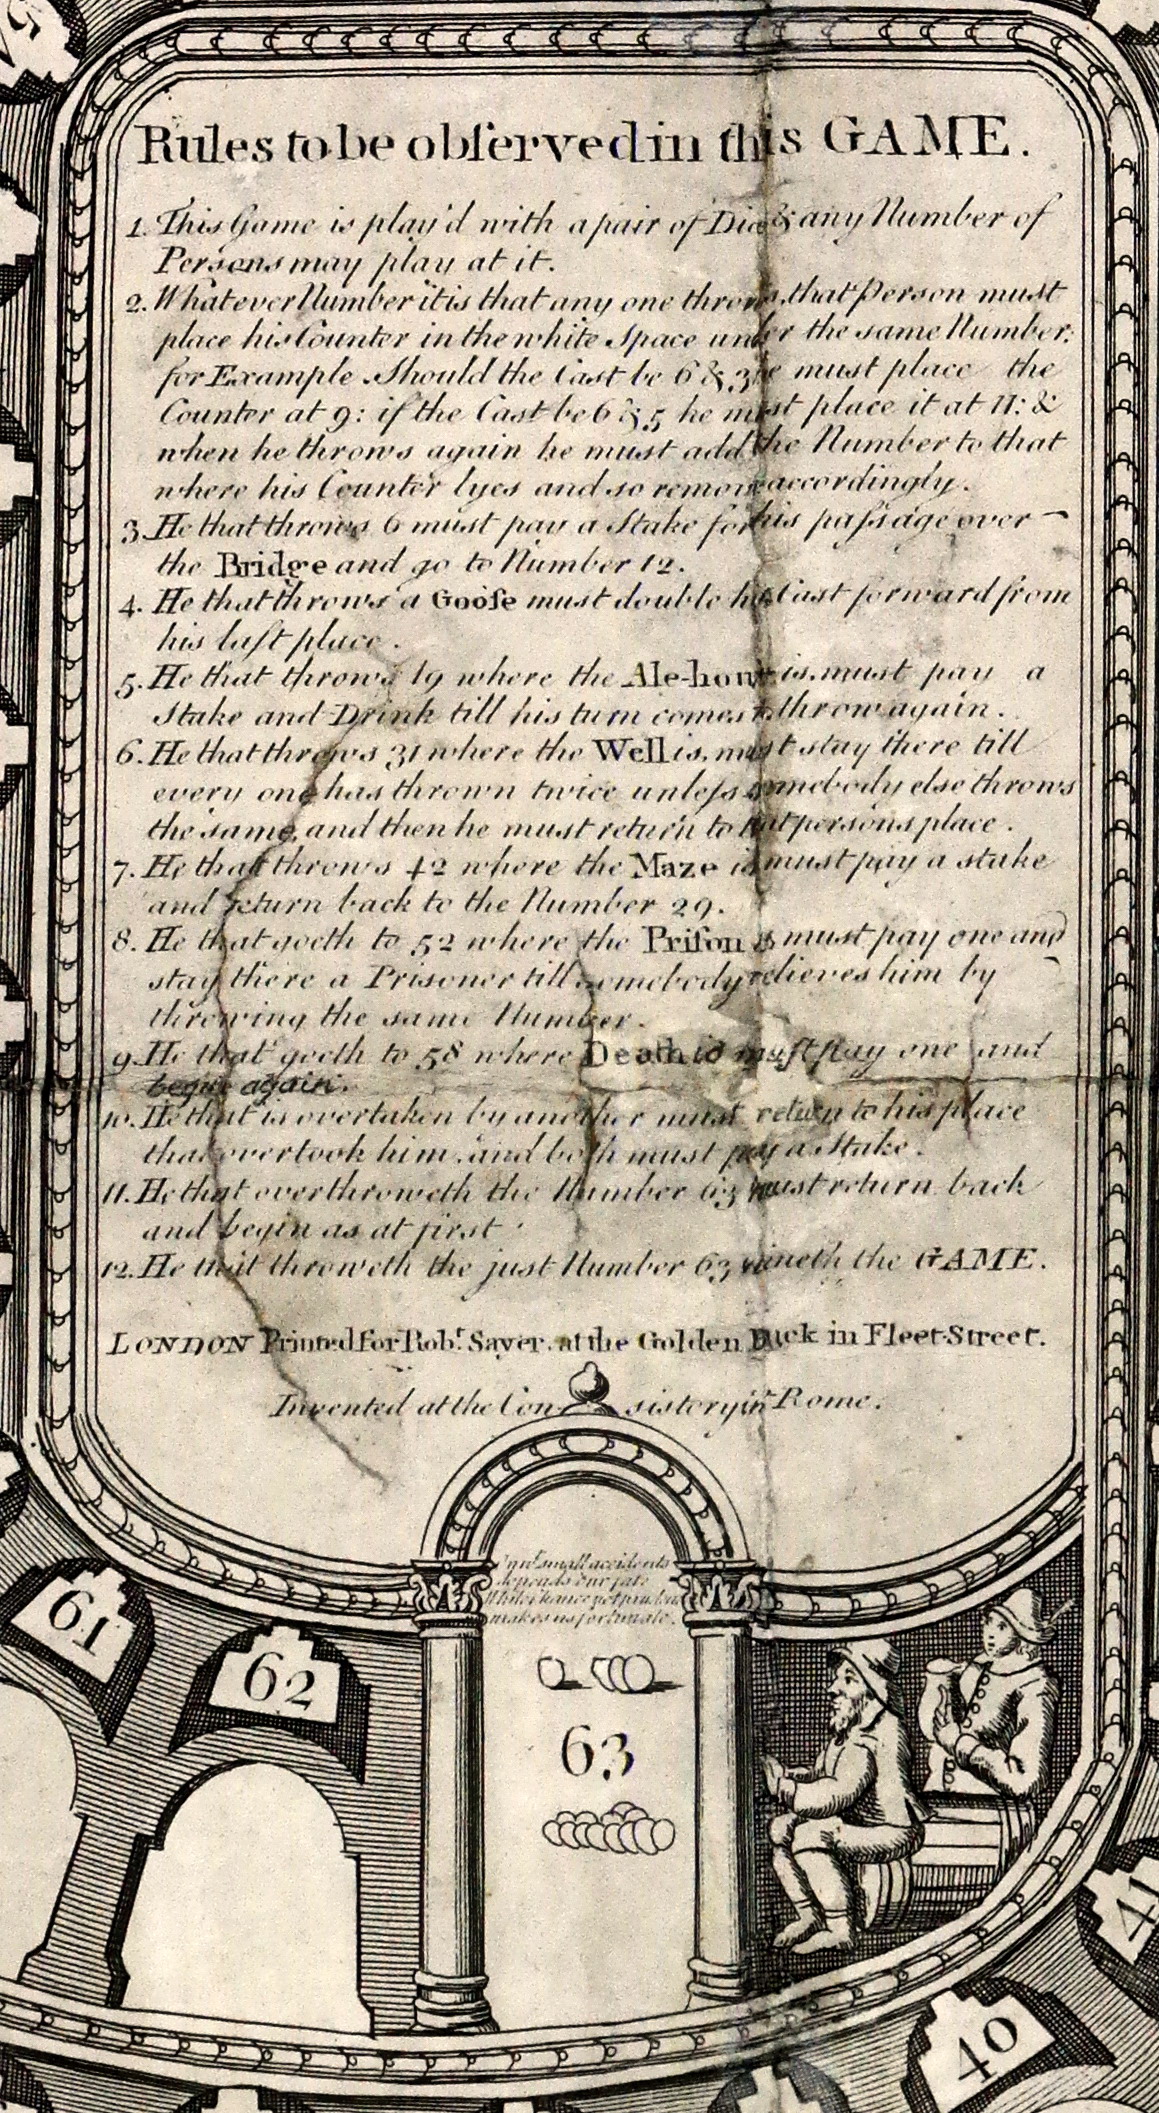 Rules to be obſerved in this GAME.
1. This Game is play'd with a pair of Dice & any Number of
Persons may play at it.
2. Whatever Number it is that any one throws, that Person must
place his Counter in the white Space under the same Number:
for Example. Should the Cast be 6 & 3 he must place the
Counter at 9: if the Cast be 6 & 5 he must place it at 11: &
when he throws again he must add the Number to that
where his Counter lyes and so remove accordingly.
3. He that throws 6 must pay a Stake for his paſsage over
the Bridge and go to Number 12.
4. He that throws a Gooſe must double his Cast forward from
his laſt place.
5. He that throws 19 where the Ale-house is, must pay a
Stake and Drink till his turn comes to throw again.
6. He that throws 31 where the Well is, must stay there till
every one has thrown twice unleſs somebody else throws
the same, and then he must return to that persons place.
7. He that throws 42 where the Maze is must pay a stake
and return back to the Number 29.
8. He that goeth to 52 where the Priſon is must pay one and
stay there a Prisoner till somebody relieves him by
throwing the same Number.
9. He that goeth to 58 where Death is muſt pay one and
begin again.
10. He that is overtaken by another must return to his place
that overtook him, and both must pay a Stake.
11. He that overthroweth the Number 63 must return back
and begin as at first
12. He that throweth the just Number 63 wineth the GAME.
LONDON Printed for Robt. Sayer, at the Golden Buck in Fleet-Street.
Invented at the Consistory in Rome.
small accidents
depends our fate
makes us fortunate.
61
62
63
41
40